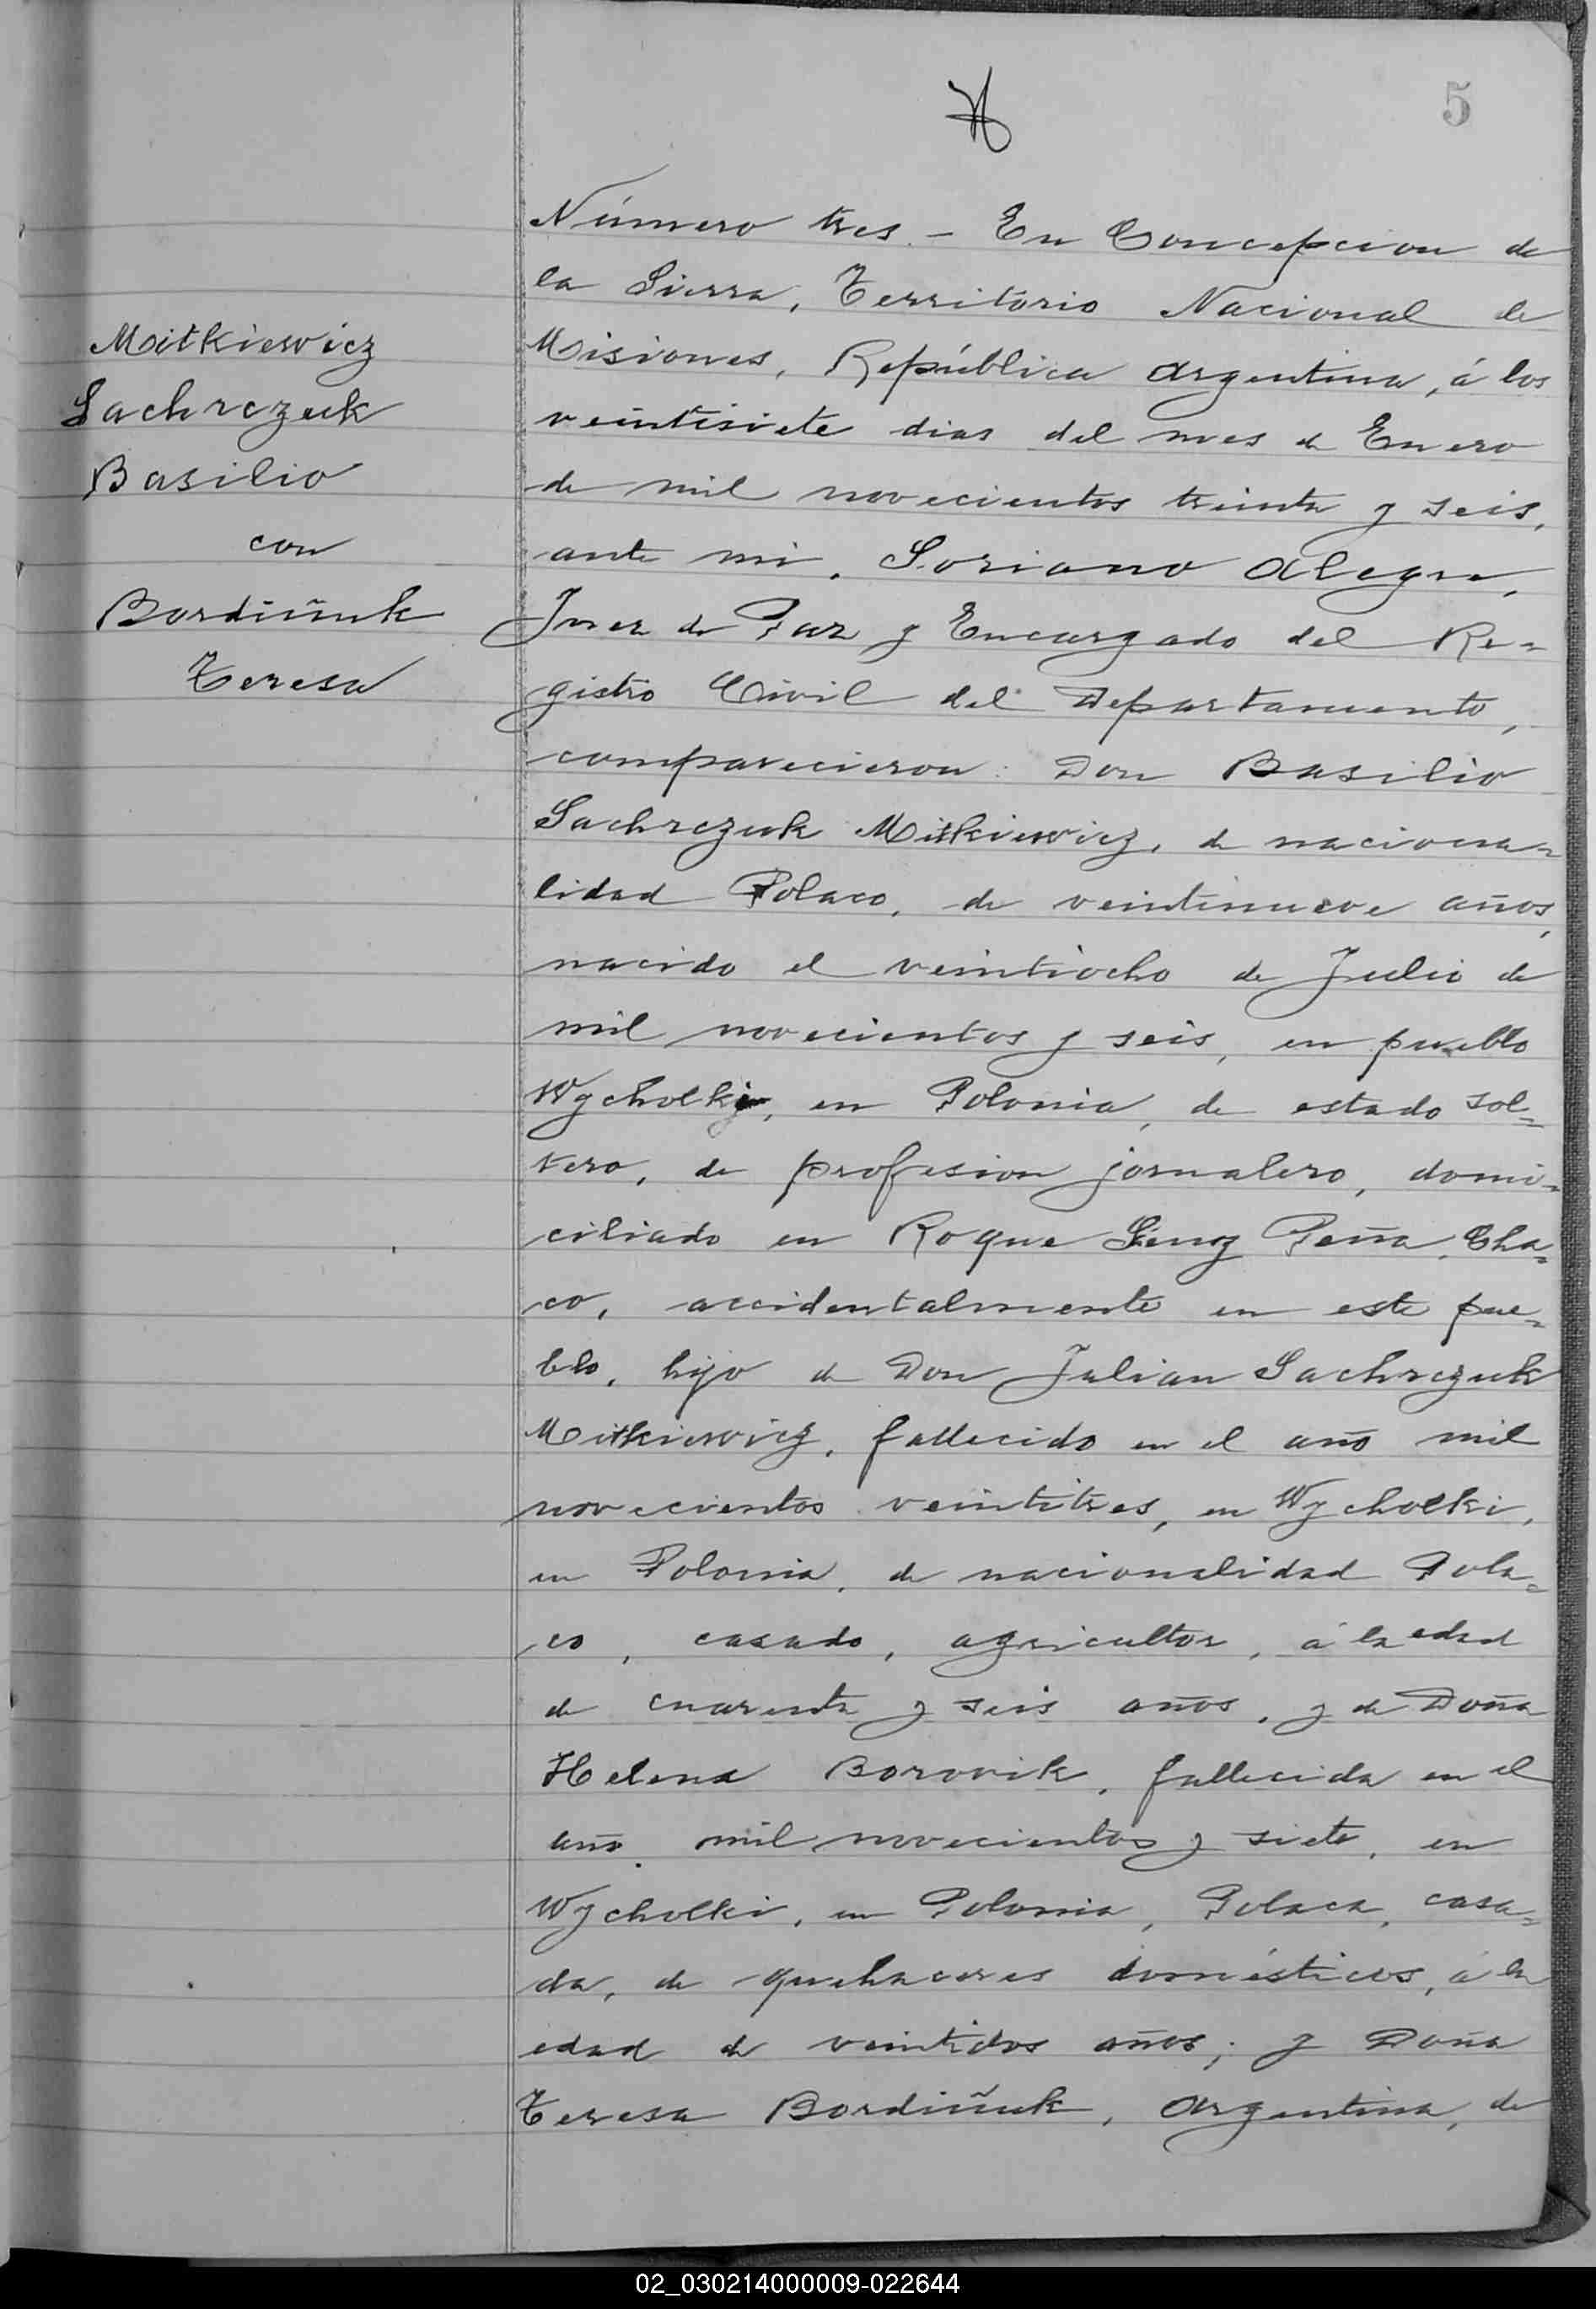 5
Mitkiewicz
Sachrczuk
Basilio
con
Bordiñuk
Teresa
Número tres. - En Concepcion de
la Sierra, Territorio Nacional de
Misiones, República Argentina, á los
veintisiete dias del mes de Enero
de mil novecientos treinta y seis,
ante mi, Soriano Alegre,
Juez de Paz y Encargado del Re=
gistro Civil del Departamento,
comparecieron: Don Basilio
Sachrczuk Mitkiewicz, de naciona=
lidad Polaco, de veintinueve años,
nacido el veintiocho de Julio de
mil novecientos y seis, en pueblo
Wycholki, en Polonia, de estado sol=
tero, de profesion jornalero, domi=
ciliado en Roque Senz Peña, Cha=
co, accidentalmente en este pue=
blo, hijo de Don Julian Sachrczuk
Mitkiewicz, fallecido en el año mil
novecientos veintitres, en Wycholki,
en Polonia, de nacionalidad Pola=
co, casado, agricultor, á la edad
de cuarenta y seis años, y de Doña
Helena Borovik, fallecida en el
año mil novecientos y siete, en
Wycholki, en Polonia, Polaca, casa=
da, de quehaceres domésticos, á la
edad de veintidos años; y Doña
Teresa Bordiñuk, Argentina, de
02_030214000009-022644